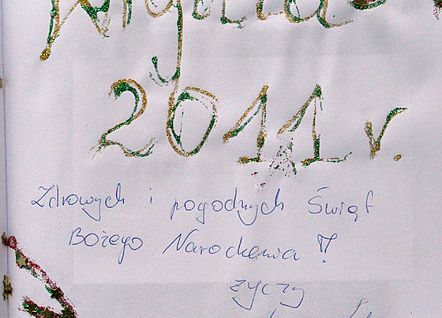 Wigilia
2011 r.
Zdrowych i pogodnych Świąt
Bożego Narodzenia !!
życzy